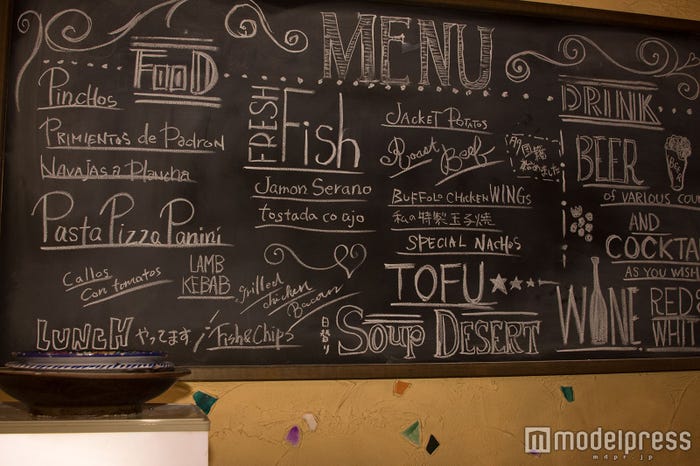 MENU
FOOD
Pinchos
PRIMIENTOS de PADRON
NAVAJAS a Plancha
Pasta Pizza Panini
Callos
Con tomatos
LAMB
KEBAB
LUNCH やってます
Fish&Chips
FRESH
Fish
Jamon Serano
tostada co ajo
Grilled
chicken
Bacon
JACKET POTATOS
Roast Beef
BUFFOLO CHICKEN WINGS
私の特製玉子焼
SPECIAL NACHOS
TOFU
日替り
Soup DESERT
DRINK
BEER
BEER
OF VARIOUS COU
AND
COCKTA
AS YOU WISH
WINE
RED&
WHIT
modelpress
mdpr.jp